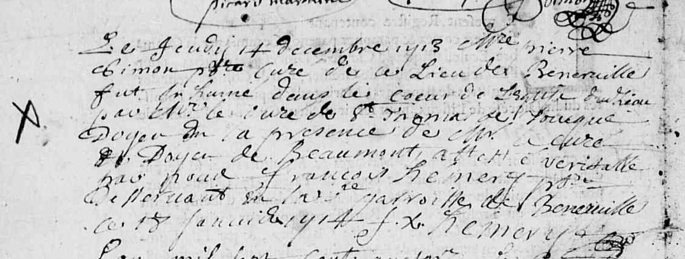 Le Jeudy 14 decembre 1713 Mre pierre
Simon ptre Curé de ce Lieu de Beneruille
fut inhumé dans le coeur de L'Eglise dud lieu
par Mr le curé de St Thoma de Touque
Doyen en la presence de Mr le Curé
Doyen de Beaumont attesté veritable
par nous François Hemery ptre
desseruant en la parroisse de Beneruille
ce 18 januié 1714 f. x. Hemery
L'an mil sept cent